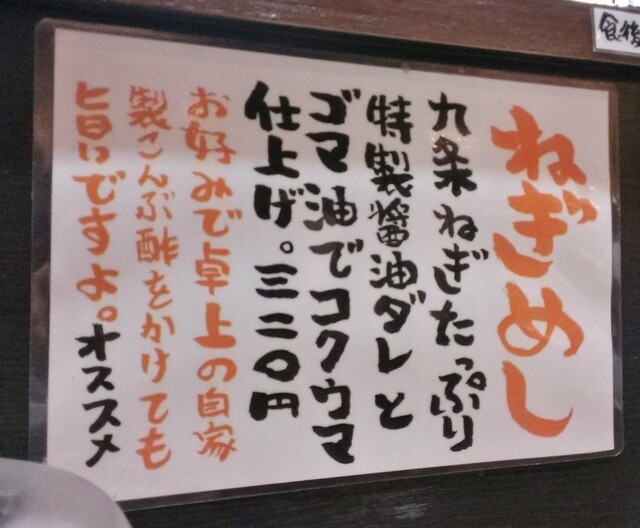 ねぎめし
九条ねぎたっぷり
特製醤油ダレと
ゴマ油でコクウマ
仕上げ。三二〇円
お好みで卓上の自家
製こんぶ酢をかけても
旨いですよ。オススメ
食後